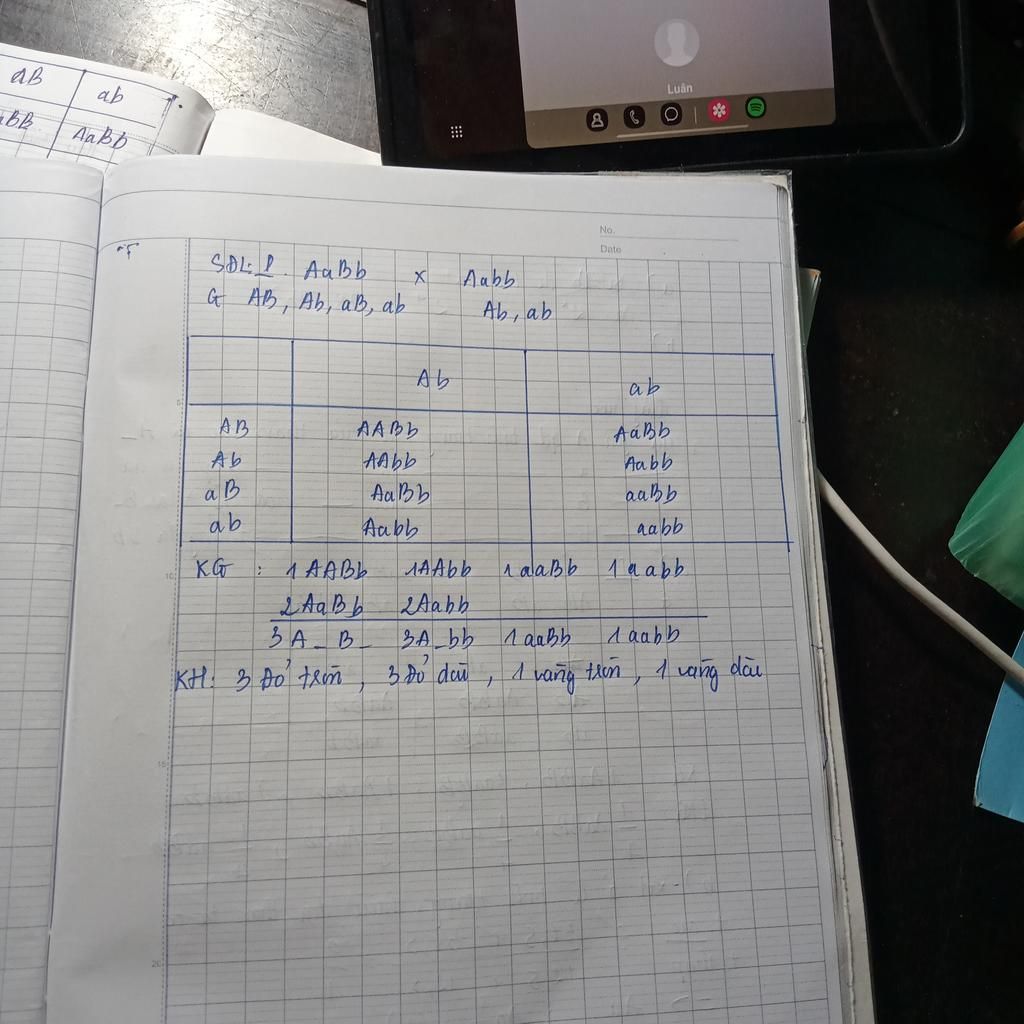 aB ab
AaBb
Luân
No.
Date
SĐL: P. AaBb x Aabb
G AB, Ab, aB, ab Ab, ab
Ab ab
AB AABb AaBb
Ab AAbb Aabb
aB AaBb aaBb
ab Aabb aabb
KG : 1 AABb 1AAbb 1aaBb 1aabb
2AaBb 2Aabb
3A_B_ 3A_bb 1aaBb 1aabb
KH: 3 Đỏ tròn, 3 Đỏ dài, 1 vàng tròn, 1 vàng dài
5
10
15
20